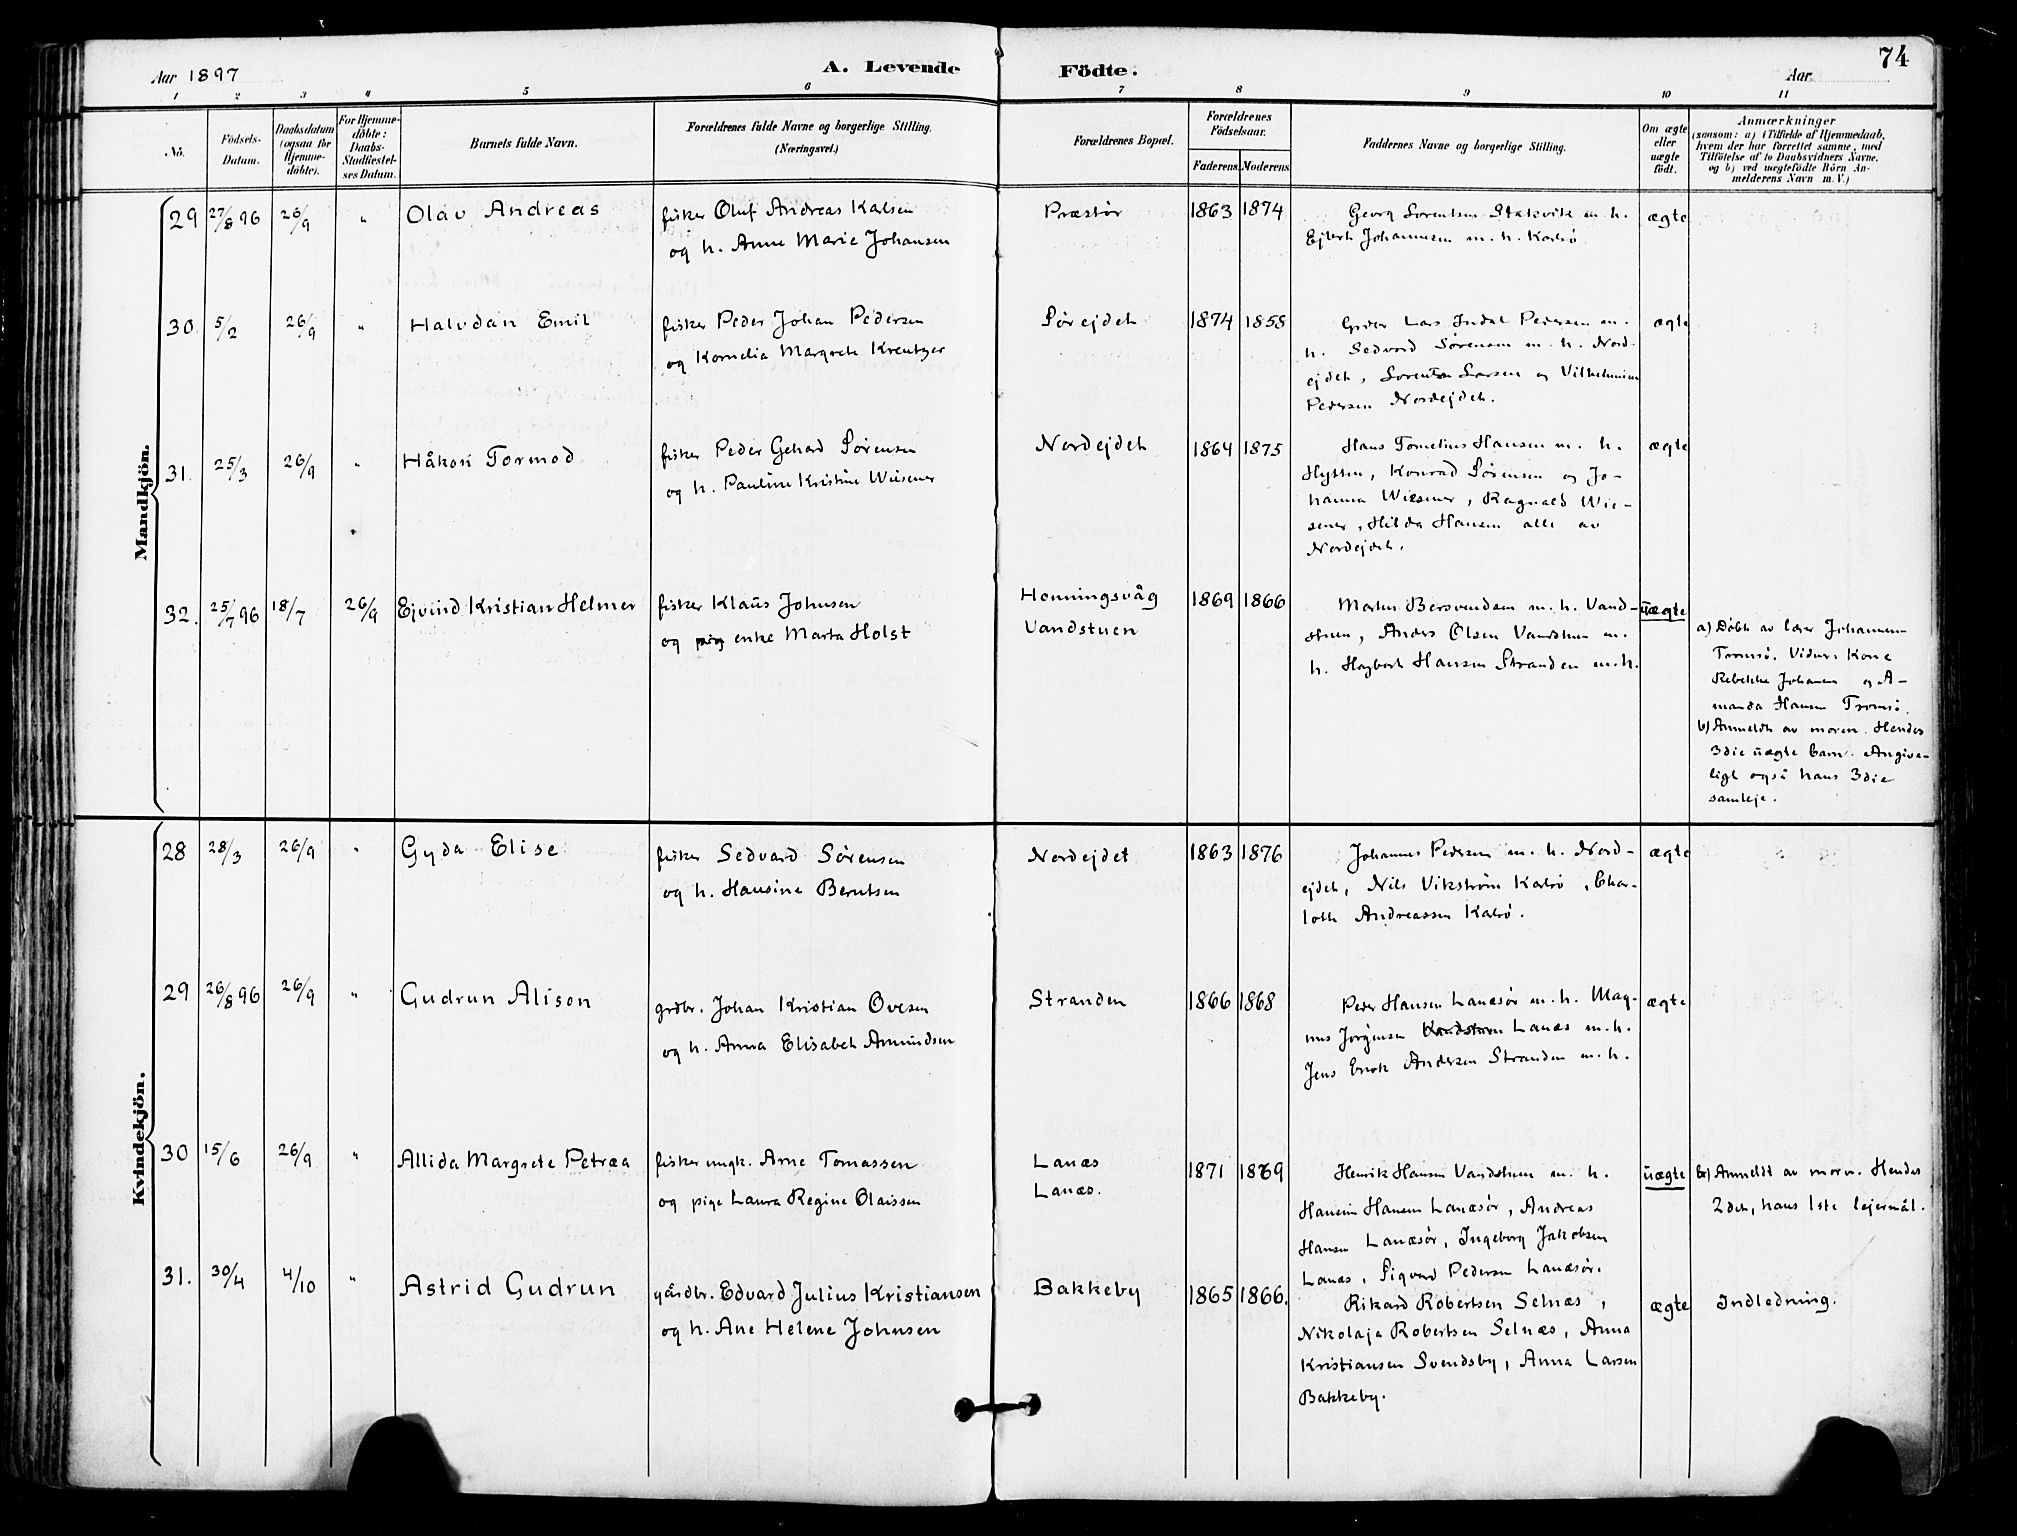 74
Aar 1897
A. Levende
Födte.
Aar
1 2 3 4 5 6 7 8 9 10 11
No.
Födsels-
Datum.
Daabsdatum
(ogsaa for
Hjemme-
döbte).
For Hjemme-
döbte:
Daabs-
Stadfæstel-
ses Datum.
Barnets fulde Navn.
Forældrenes fulde Navne og borgerlige Stilling.
(Næringsvei.)
Forældrenes Bopæl.
Forældrenes
Födselsaar.
Faderens. Moderens
Faddernes Navne og borgerlige Stilling.
Om ægte
eller
uægte
födt.
Anmærkninger
(saasom: a) i Tilfælde af Hjemmedaab,
hvem der har forrettet samme, med
Tilföielse af to Daabsvidners Navne.
og b) ved uægtefödte Börn An-
melderens Navn m. V.)
Mandkjön.
29 27/8 96 26/9 " Olav Andreas
fisker Oluf Andreas Karlsen
og h. Anne Marie Johansen
Præstør
1863 1874
Georg Sorentsen Stakvik m. h.
Ejlert Johannesen m. h. Karlsø
ægte
30. 5/2 26/9 " Halvdan Emil
fisker Peder Johan Pedersen
og Kornelia Margrete Kreutzer
Sørejdet
1874 1858
Lars Indal Pedersen m.
h. Sedvard Sørensen m. h. Nord-
ejdet, Sorentsen Larsen og Vilhelmine
Pedersen Nordejdet.
ægte
31. 25/3 26/9 " Håkon Tormod
fisker Peder Gehard Sørensen
og h. Pauline Kristine Wiesener
Nordejdet
1864 1875
Hans Tomelius Hansen m. h.
Hysten, Konrad Sørensen og Jo-
hanna Wiesener, Ragnald Wie-
sener, Hilda Hansen alle av
Nordejdet.
ægte
32. 25/7 96 18/7 26/9 Ejvind Kristian Helmer
fisker Klaus Johnsen
og pig enke Marta Holst
Honningsvåg
Vandstuen
1869 1866
Martin Bersvendsen m. h. Vand-
stuen, Anders Olsen Vandstuen m.
h. Hagbart Hansen Stranden m. h.
uægte
a) Døbt av lærer Johannesen
Tromsø. Vidner: Kone
Rebekka Johansen og A-
manda Hansen Tromsø.
b) Anmeldt av moren. Hendes
3die uægte barn. Angive-
ligt også hans 3die
samleje.
Kvindekjön.
28 28/3 26/9 " Gyda Elise
fisker Sedvard Sørensen
og h. Hansine Berntsen
Nordejdet
1863 1876
Johannes Pedersen m. h. Nord-
ejdet, Nils Vikstrøm Karlsø, Char-
lotte Andreassen Karlsø.
ægte
29 26/8 96 26/9 " Gudrun Alison
grdbr. Johan Kristian Ovesen
og h. Anna Elisabet Amundsen
Stranden
1866 1868
Peder Hansen Lanæsør m. h. Mag-
nus Jørgensen Vandstuen Lanæs m. h.
Jens Erik Andersen Stranden m. h.
ægte
30 15/6 26/9 " Allida Margrete Petræa
fisker ungk. Arne Tomassen
og pige Laura Regine Olaissen
Lanæs
Lanæs.
1871 1869
Henrik Hansen Vandstuen m. h.
Hansine Hansen Lanæsør, Andreas
Hansen Lanæsør, Ingeborg Jakobsen
Lanæs, Sigvard Pedersen Lanæsør.
uægte
b) Anmeldt av moren. Hendes
2det, hans 1ste lejermål.
31. 30/4 4/10 " Astrid Gudrun
gårdbr. Edvard Julius Kristiansen
og h. Ane Helene Johnsen
Bakkeby
1865 1866.
Rikard Robertsen Selnæs,
Nikolaja Robertsen Selnæs, Anna
Kristiansen Svendsby, Anna Larsen
Bakkeby.
ægte
Indledning.